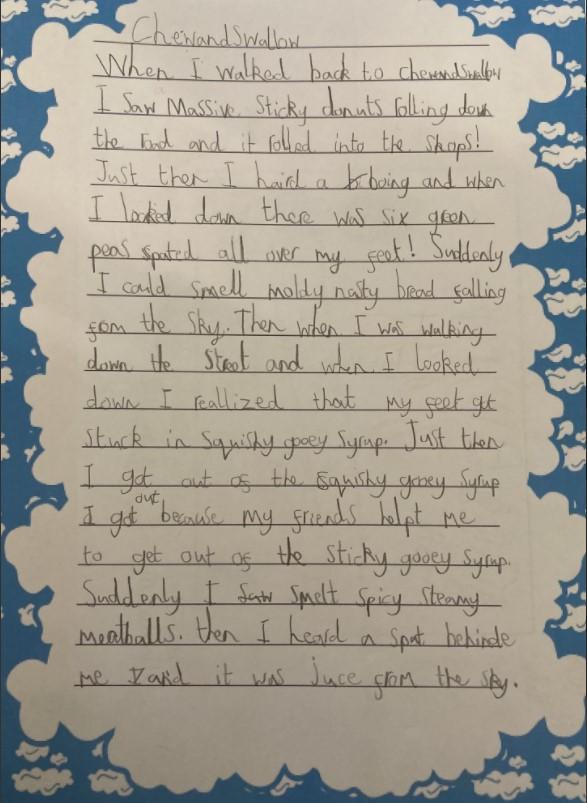 ChewandSwallow
When I walked back to chewandSwallow
I Saw Massive Sticky donuts rolling down
the road and it rolled into the shops!
Just then I haird a boing and when
I looked down there was six green
peas spated all over my feet! Suddenly
I could smell moldy nasty bread falling
from the sky. Then when I was walking
down the street and when I looked
down I reallized that my feet got
stuck in squishy gooey syrup. Just then
I got out of the squishy gooey syrup
I got out because my friends helpt me
to get out of the sticky gooey syrup.
Suddenly I saw smelt spicy steamy
meatballs. then I heard a spat behinde
me and it was juce from the sky.